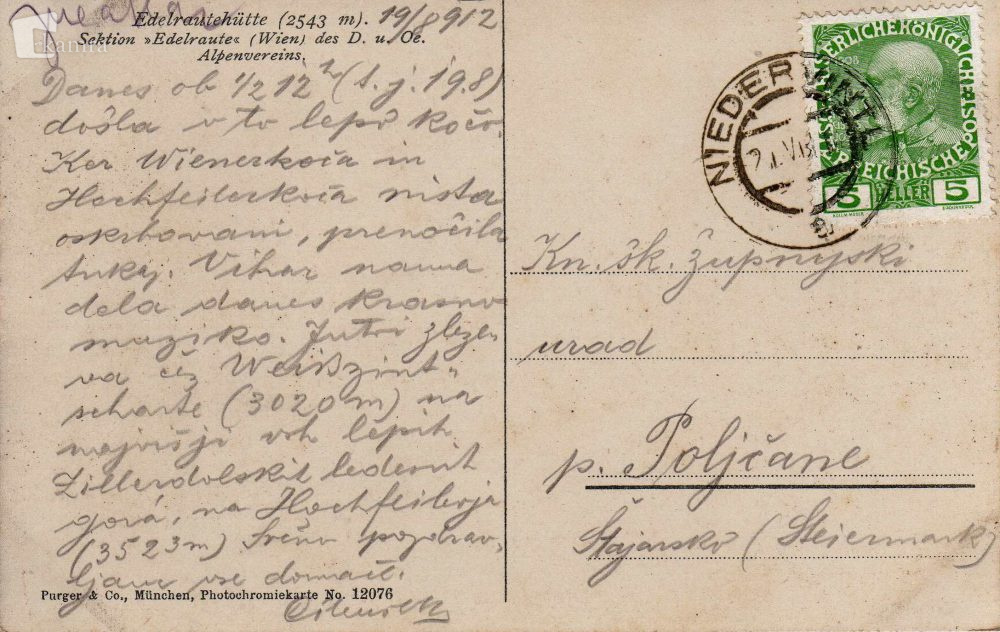 19/8 912
Edelrautehütte (2543 m).
Sektion »Edelraute« (Wien) des D. u. Oe.
Alpenvereins.
kamra
Danes ob 1/2 12 h (t. j. 19.8)
došla v to lepo kočo.
Ker Wienerkoča in
Hochfeilerkoča nista
oskrbovani, prenočila
tukaj. Vihar nama
dela danes krasno
muziko. Jutri zleze-
va čez Weißzint-
scharte (3020 m) na
najvišji vrh lepih
Zillerdolskih ledenih
gorá, na Hochfeilerja
(3523 m) Srčno pozdrav-
ljam vse domače.
Purger & Co., München, Photochromiekarte No. 12076
NIEDERVINTL
KAISERLICHE KÖNIGLICHE
ÖSTERREICHISCHE POST
1908
5 HELLER 5
KOLL. MOSER
Kn. šk. župnijski
urad
p. Poljčane
Štajarsko (Steiermark)